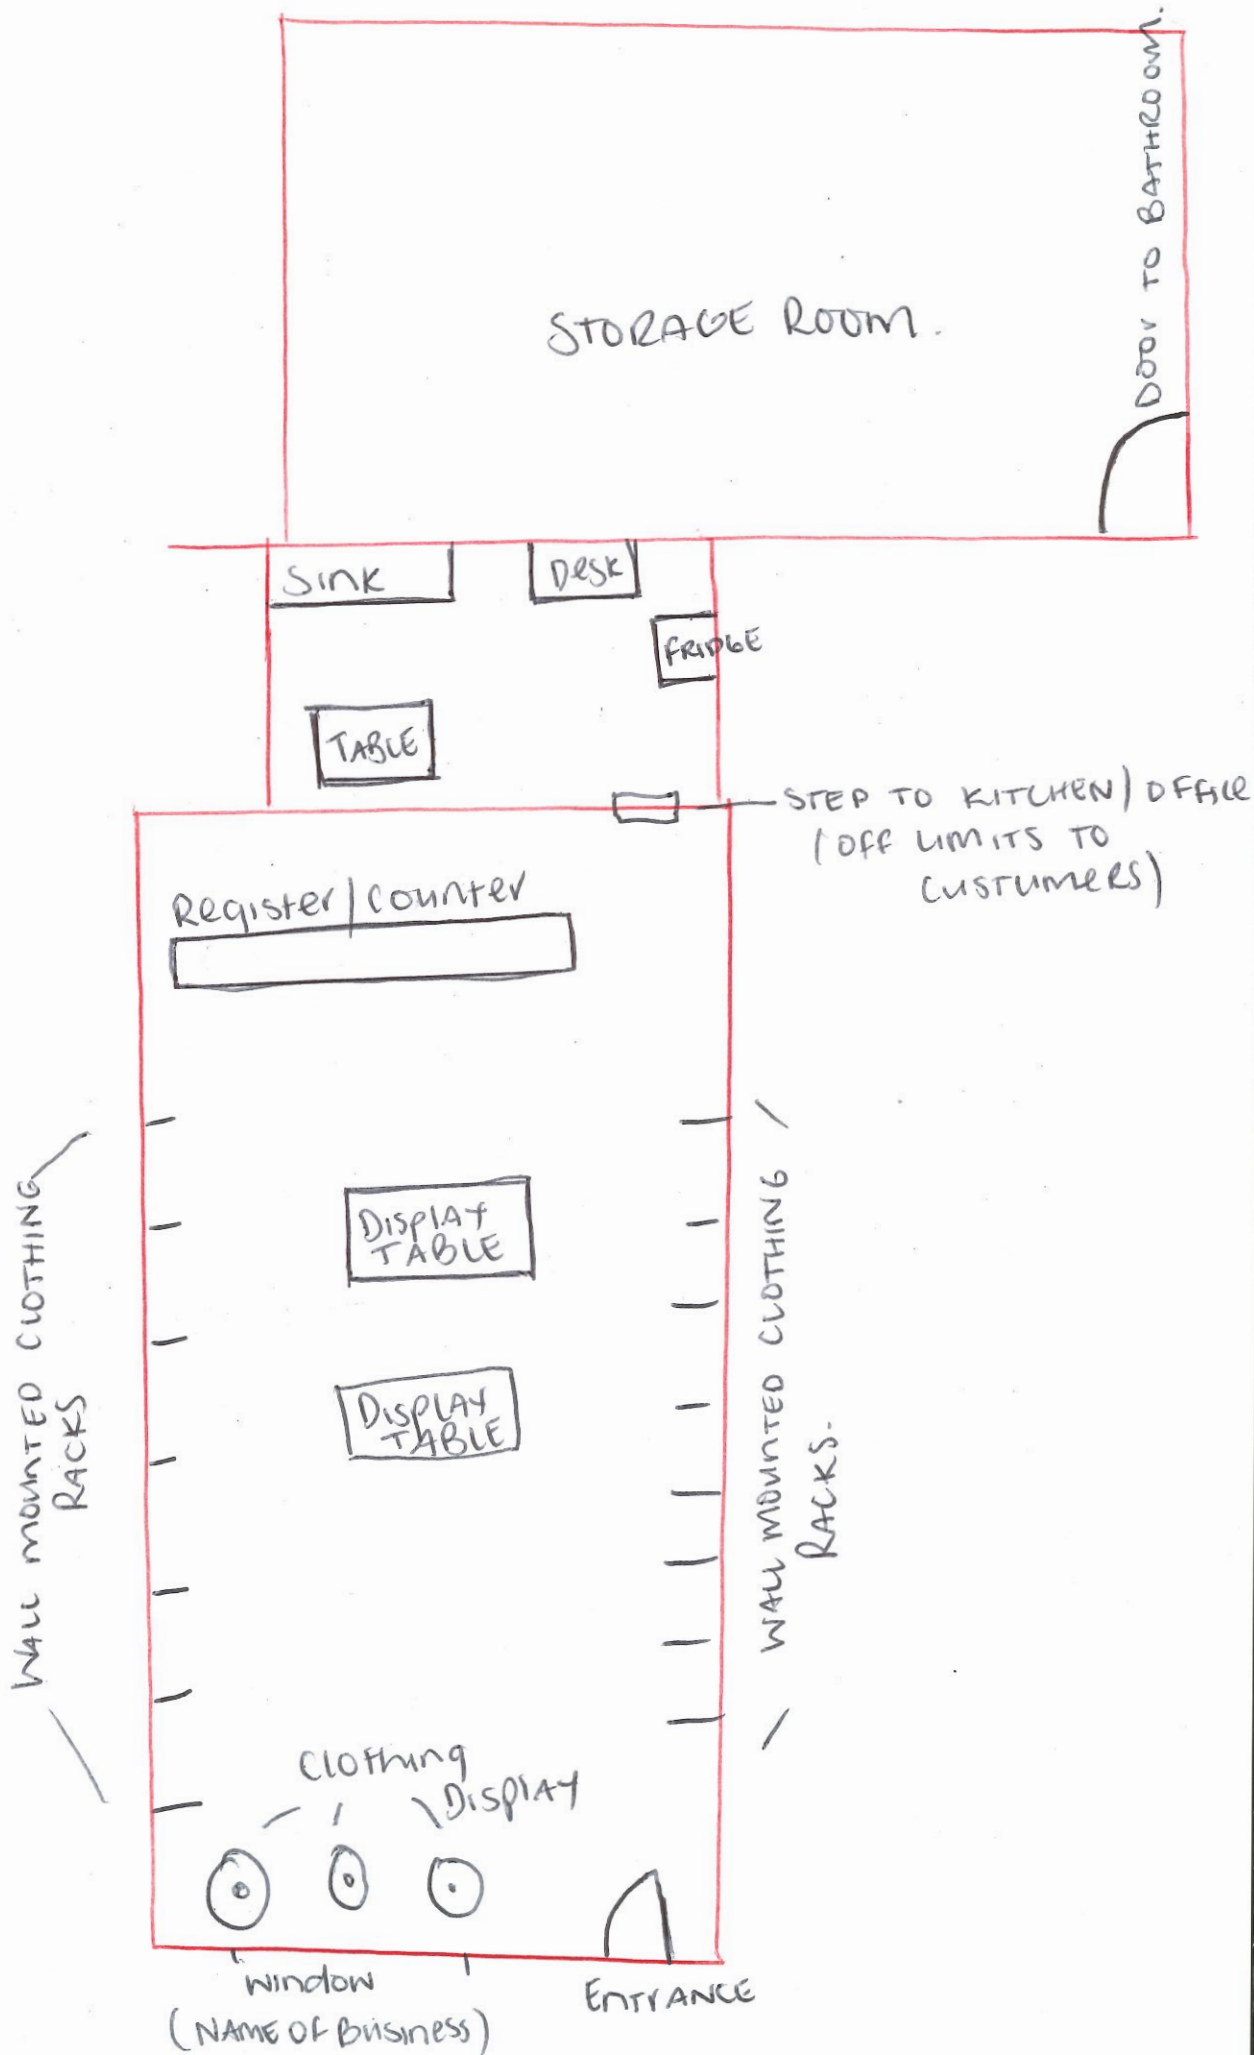 DOOr TO BATHROOM.
STORAGE ROOM.
Sink
Desk
FRIDGE
TABLE
STEP TO KITCHEN/OFFICE
(OFF LIMITS TO
CUSTUMERS)
Register/Counter
WALL MOUNTED CLOTHING
RACKS
DISPLAY
TABLE
DISPLAY
TABLE
WALL MOUNTED CLOTHING
RACKS.
Clothing
DISPLAY
Window
(NAME OF Business)
ENTrANCE